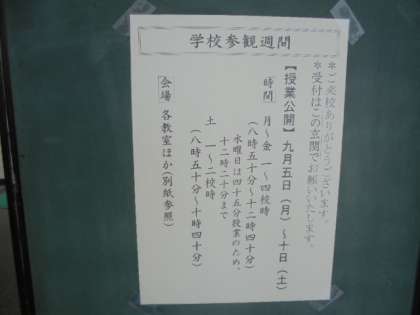 学校参観週間
＊ご来校ありがとうございます。
＊受付はこの玄関でお願いいたします。
【授業公開】九月五日（月）～十日（土）
時間　月～金　一～四校時
（八時五十分～十二時四十分）
水曜日は四十五分授業のため、
十二時二十分まで
土　一～二校時
（八時五十分～十時四十分）
会場　各教室ほか（別紙参照）